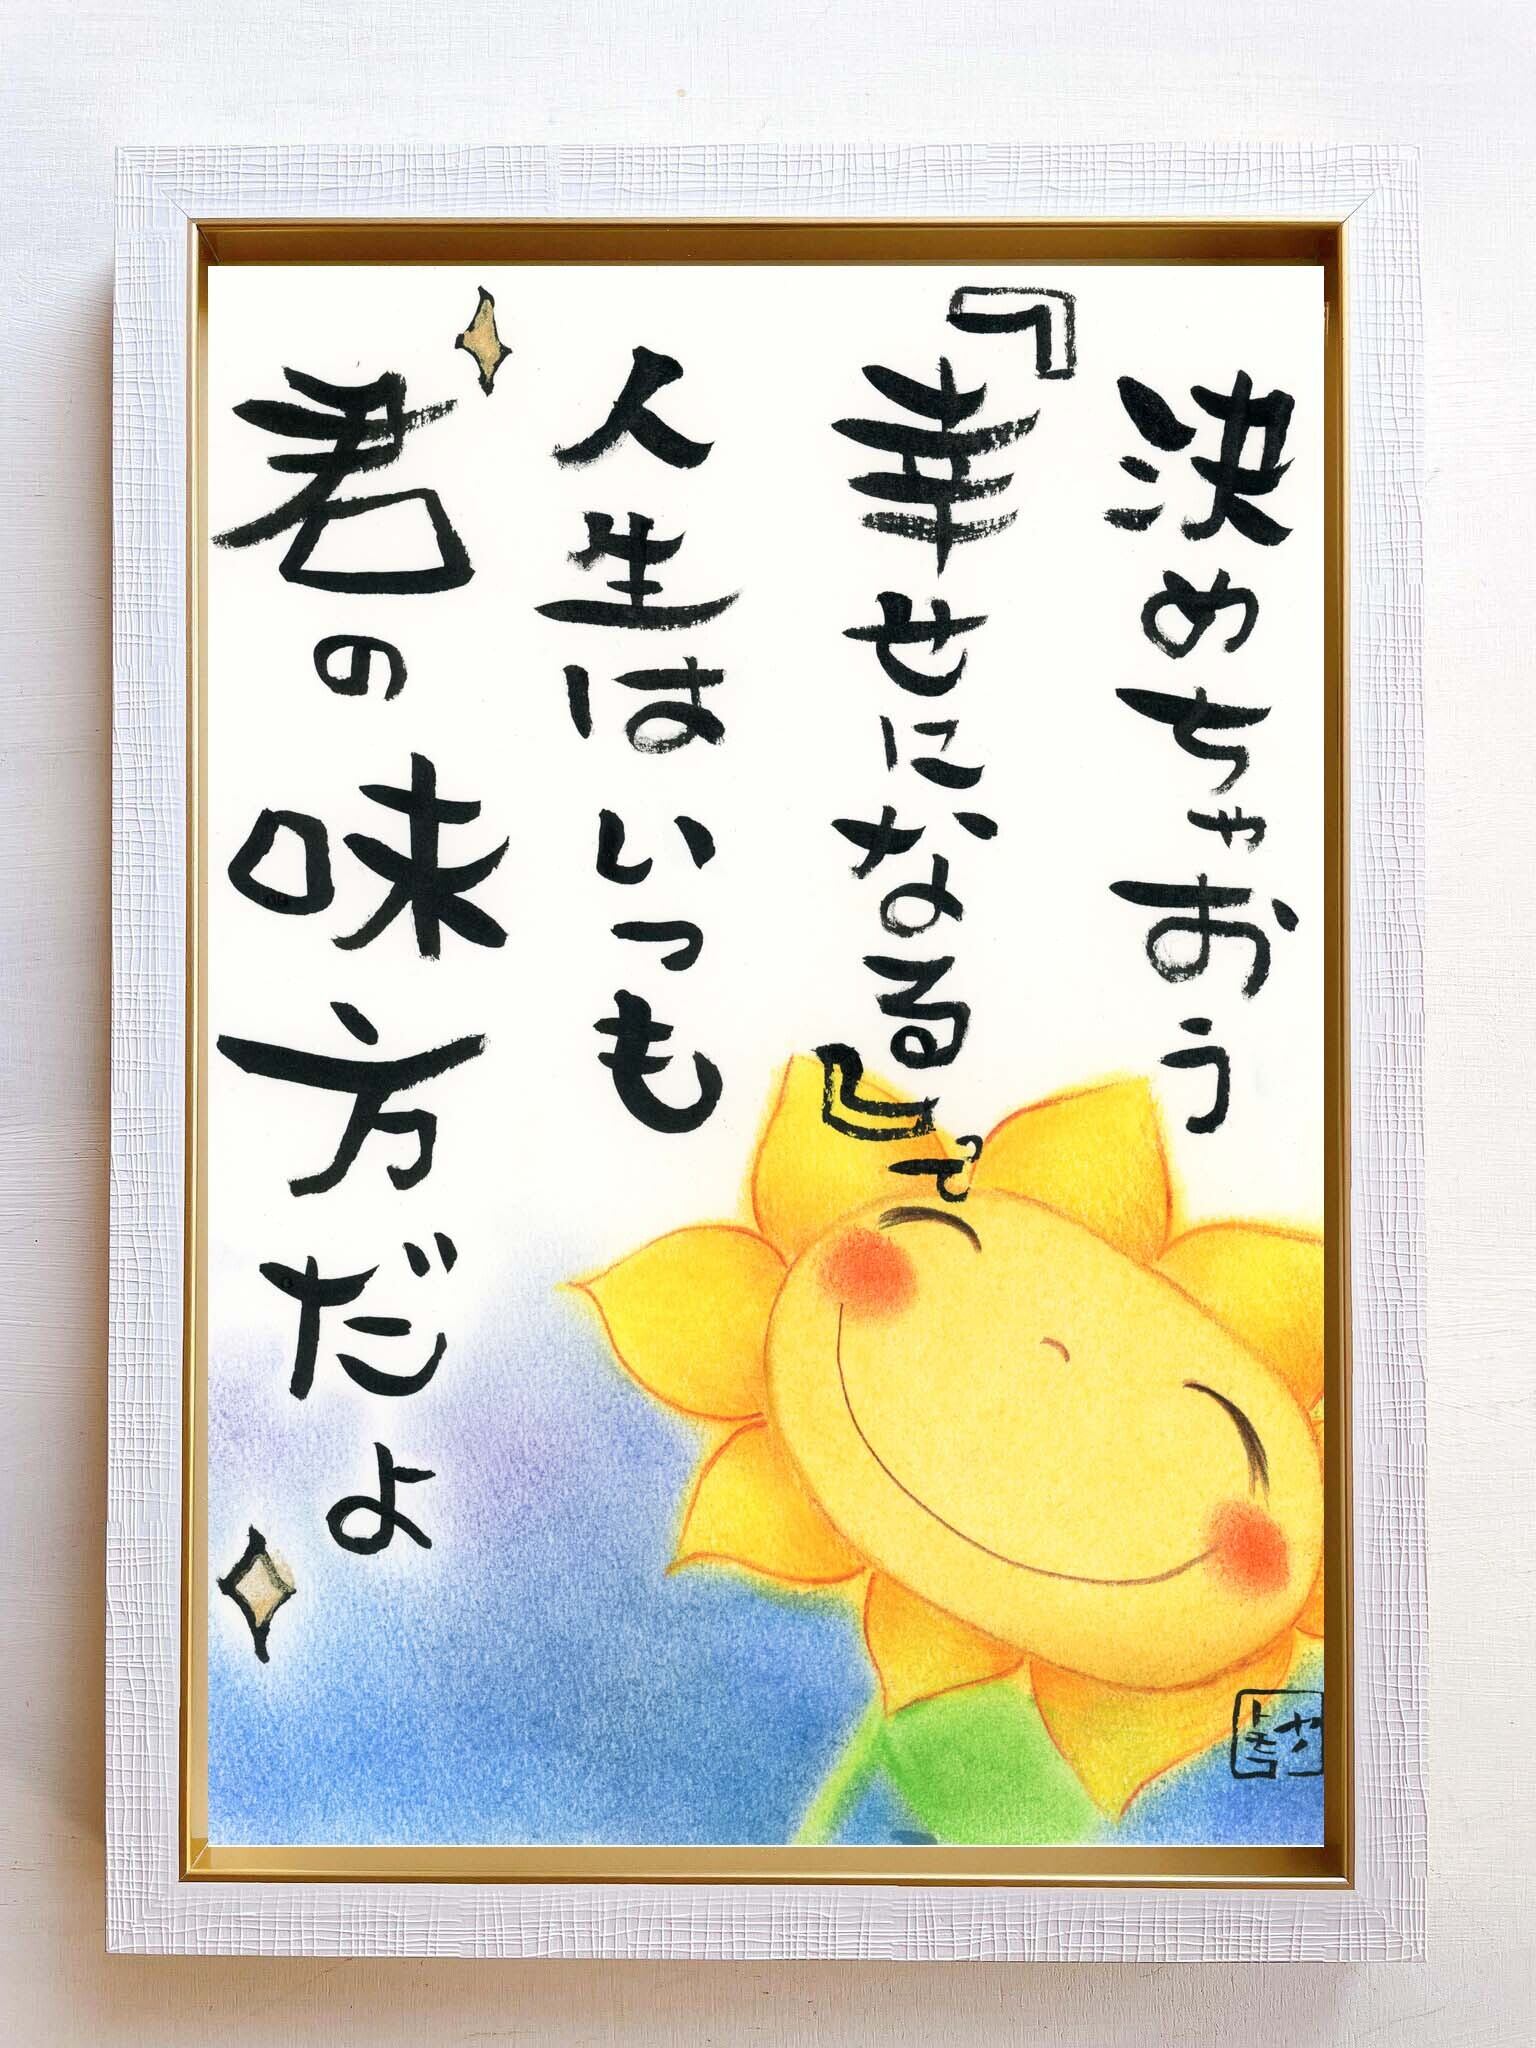 決めちゃおう
『幸せになる』って
人生はいつも
君の味方だよ